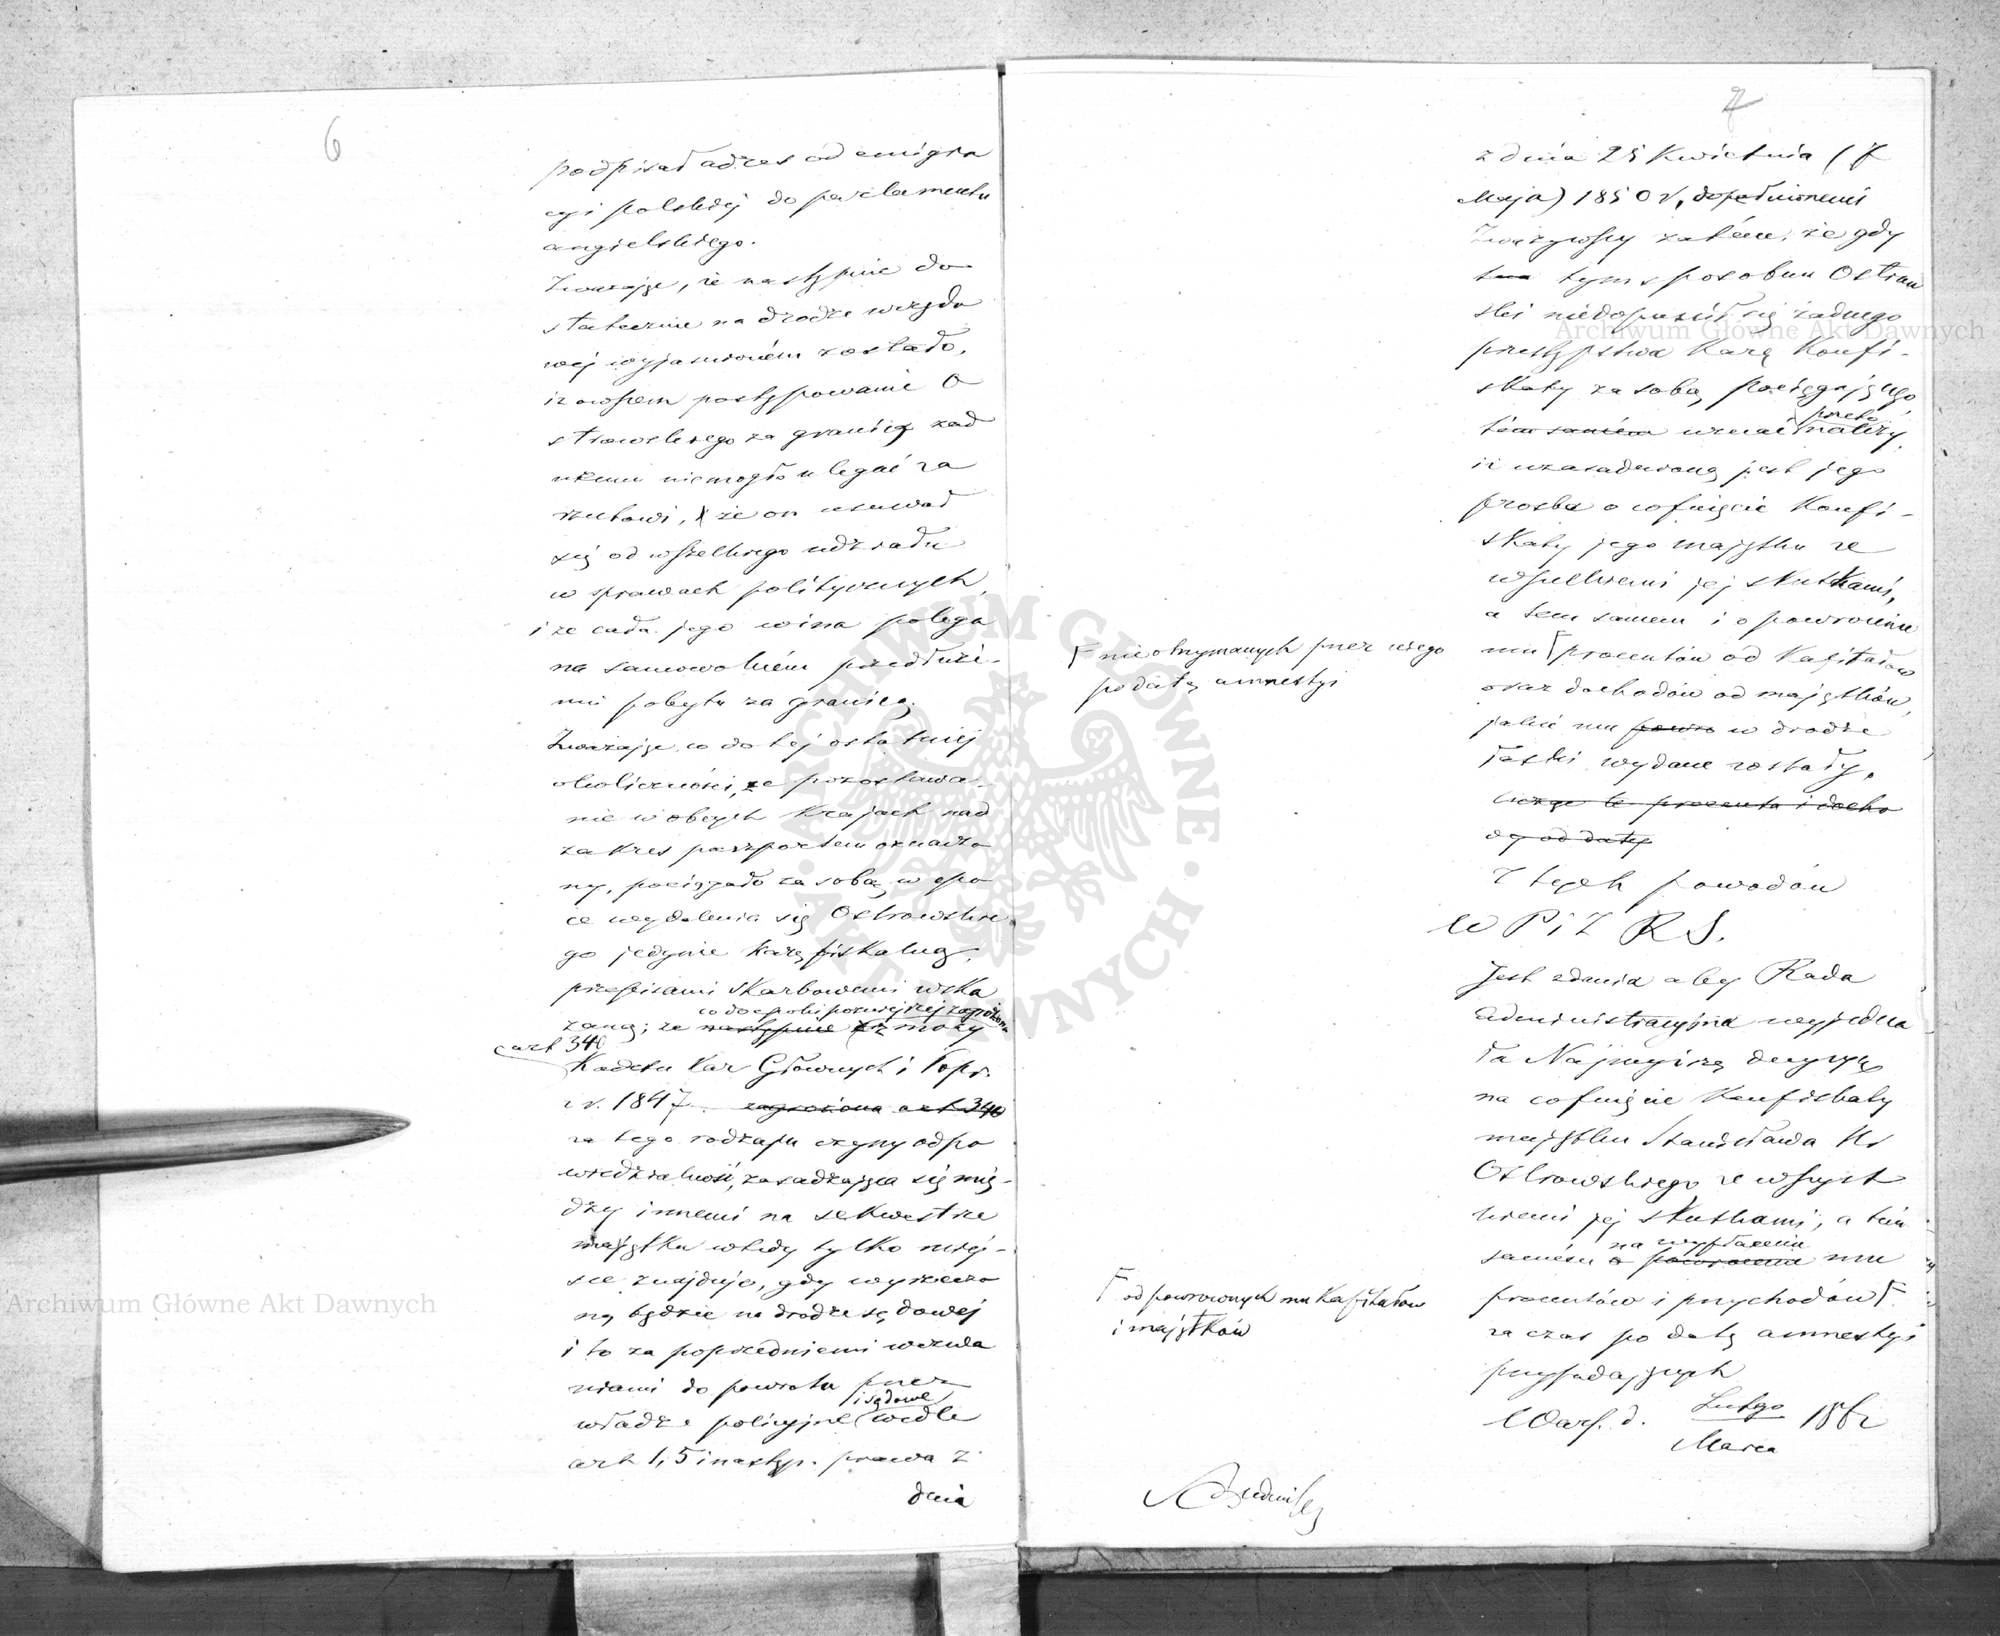 6
podpisał adres od emigra
cyi polskiej do parlamentu
angielskiego.
Zważając, że następnie do
statecznie na drodze urzędo
wéj wyjaśnioném zostało,
iż owszem postępowanie O
strowskiego za granicą żad
nemu niemogło ulegać za
rzutowi, że on usuwał
się od wszelkiego udziału
w sprawach politycznych,
i że cała jego wina polega
na samowolném przedłuże-
niu pobytu za granicą.
Zważając co do téj ostatniéj
okoliczności, że pozostawa-
nie w obcych Krajach nad
zakres paszportem oznaczo
ny, pociągało za sobą w epo
ce wydalenia się Ostrowskie
go jedynie karę fiskalną,
przepisami Skarbowemi wska
co do epoki pozniejszej zagrożona
zaną; że następnie z mocy
art 340
Kodexu Kar Głównych i Popr.
z r. 1847. zagrożona art 340
za tego rodzaju czyny odpo
wiedzialność, zasadzająca się mię-
dzy innemi na sekwestrze
majątku wtedy tylko miej-
sce znajduje, gdy wyrzeczo
ną będzie na drodze sądowéj
i to za poprzedniemi wezwa
niami do powrotu przez
i sądowe
władze policyjne wedle
art 1, 5 i następ. prawa z
dnia
7
z dnia 25 Kwietnia (7
Maja) 1850 r, dopełnionemi
Zważywszy zatém, że gdy
tym sposobem Ostrow
ski niedopuścił się żadnego
przestępstwa Karę Konfi-
skaty za sobą pociągającego
przeto
tém samém uznać należy,
iż uzasadnioną jest jego
prosba o cofnięcie Konfi-
skaty jego majątku ze
wszelkiemi jej skutkami,
a tem samem i o powrócenie
mu procentów od Kapitałów
oraz dochodów od majątków,
jakie mu powro w drodze
łaski wydane zostały.
licząc te procenta i docho
dy od daty
Z tych powodów
W P i Z R S.
Jest zdania aby Rada
administracyjna wyjedna
ła Najwyższą decyzyę
na cofnięcie Konfiskaty
majątku Stanisława Hr
Ostrowskiego ze wszyst
kiemi jej skutkami, a tém
na wypłacenie
samém o powrocenie mu
procentów i przychodów
za czas po dacie amnestyi
przypadających
Wars. d. Lutego 1862
Marca
nieotrzymanych przez niego
po datę amnestyi
od powroconych mu Kapitałów
i majątków
Archiwum Główne Akt Dawnych
Archiwum Główne Akt Dawnych
ARCHIWUM GŁÓWNE · AKT DAWNYCH ·